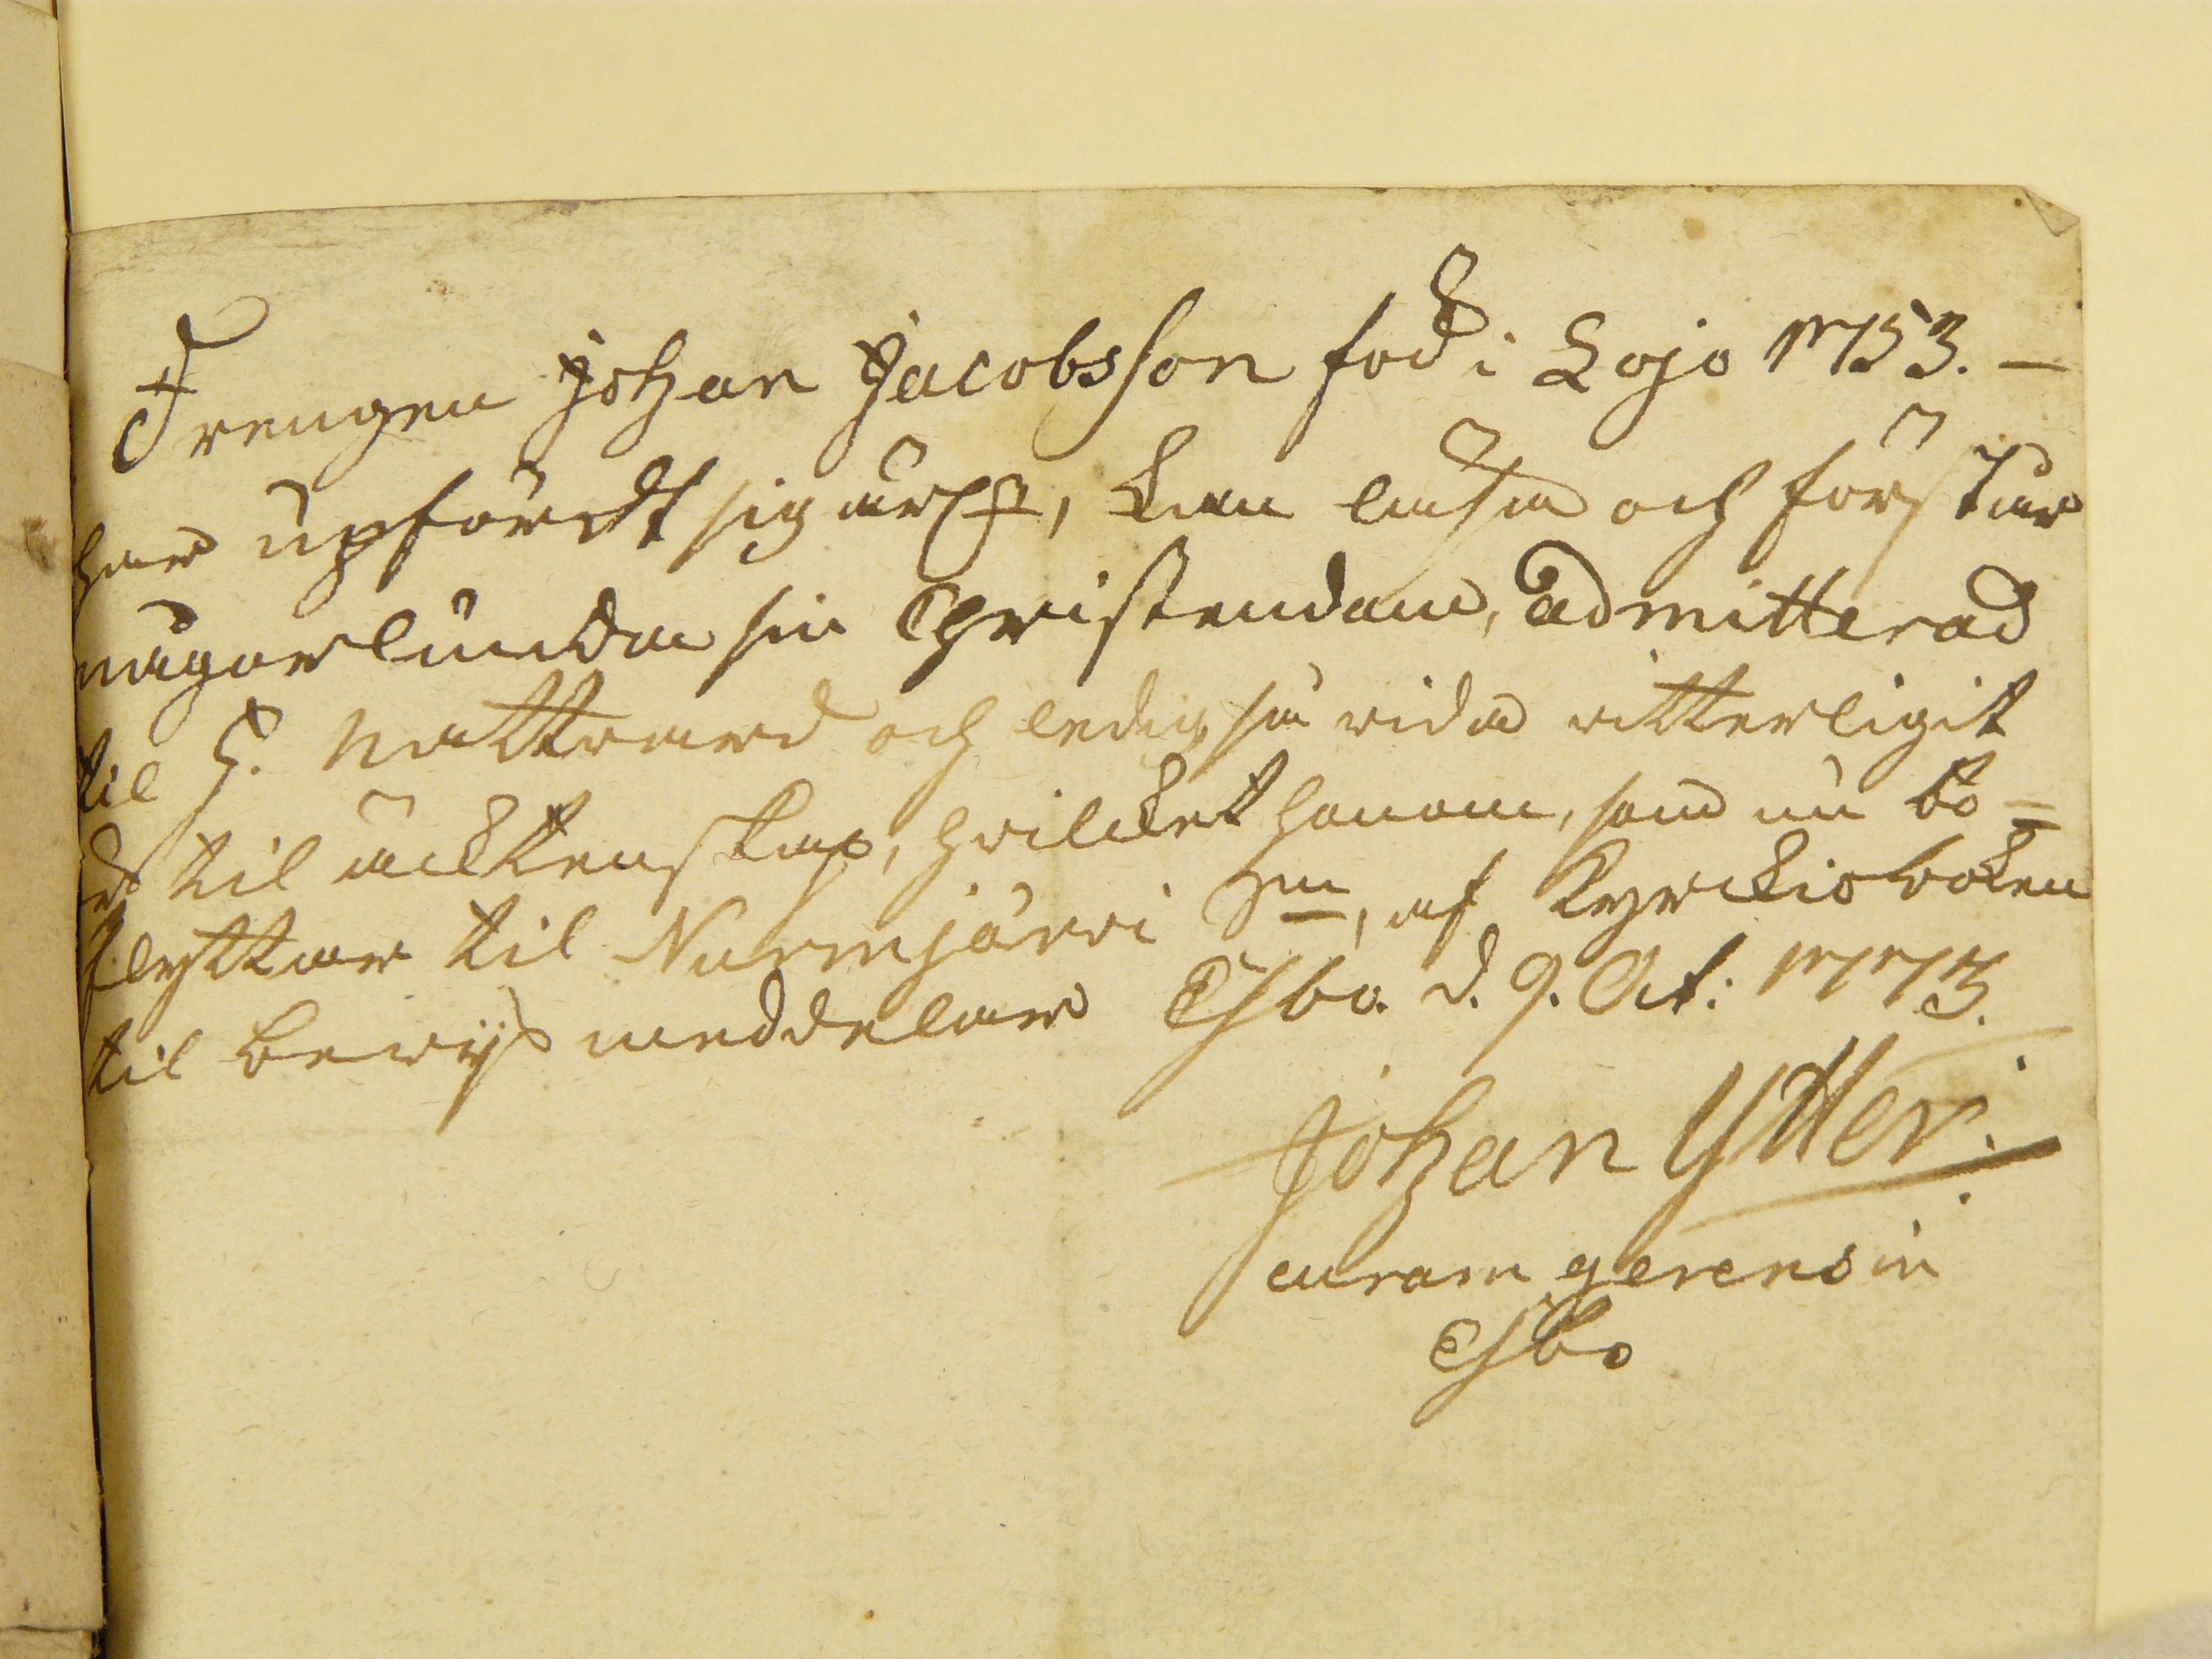 Drengen Johan Jacobsson född i Lojo 1753. —
har upfördt sig ärl:t, kan läsa och förstår
någorlunda sin Christendom, admitterad
til H. Nattward och ledig så vida vitterligit
är til äcktenskap, hvilcket honom, som nu bo=
flyttar til Nurmjärvi Sn, af Kyrckioboken
til bewijs meddelar Esbo d. 9. Oct: 1773.
Johan Ytter.
curam gerens in
Esbo